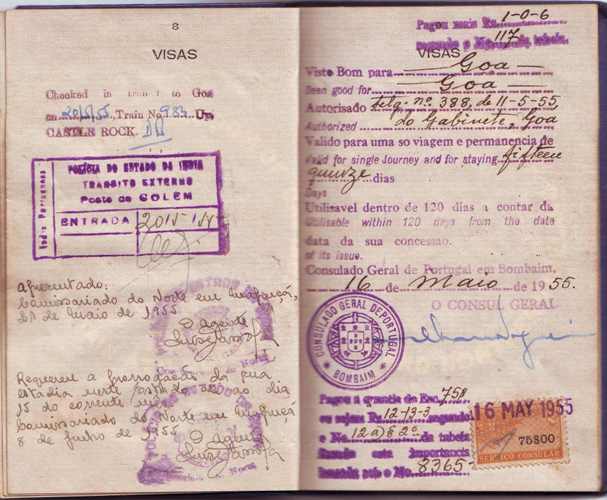 8
VISAS
Checked in transit to Goa
on 20/5/55, Train No 983 Up
CASTLE ROCK.
India Portuguesa
POLÍCIA DO ESTADO DA INDIA
TRANSITO EXTERNO
Posto de COLÉM
ENTRADA 20·5·55
Apresentado:
Comissariado do Norte em Mapuçá,
de Maio de 1955
O Agente
Requereu a prorrogação da sua
estadia neste até ao dia
15 do corrente mês
Comissariado do Norte em Mapuçá
8 de Junho de 1955
O Agente
Pagou mais Rs. 1-0-6
segundo o No. 117 da tabela.
VISAS
Visto Bom para Goa
Seen good for Goa
Autorisado telg. nº. 388, de 11-5-55,
Authorized do Gabinete, Goa
Valido para uma so viagem e permanencia de
Valid for single Journey and for staying fifteen
quinze dias
Days
Utilisavel dentro de 120 dias a contar da
Utilisable within 120 days from the date
data da sua concessão.
of its issue.
Consulado Geral de Portugal em Bombaim,
16 de Maio de 1955.
O CONSUL GERAL
CONSULADO GERAL DE PORTUGAL
BOMBAIM
Pagou a quantia de Esc. 75$
ou sejam Rs. 12-13-3 segundo
o No. 12 a) & 2º da tabela
Ficando esta importancia
sob o No. 8365
16 MAY 1955
75$00
SERVIÇO CONSULAR